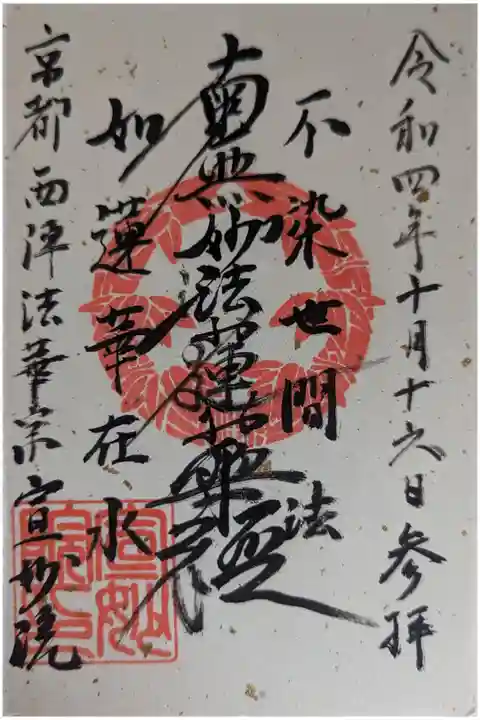 令和四年十月十六日参拝
不染世間法
南無妙法蓮華経
如蓮華在水
京都西陣法華宗宣妙院